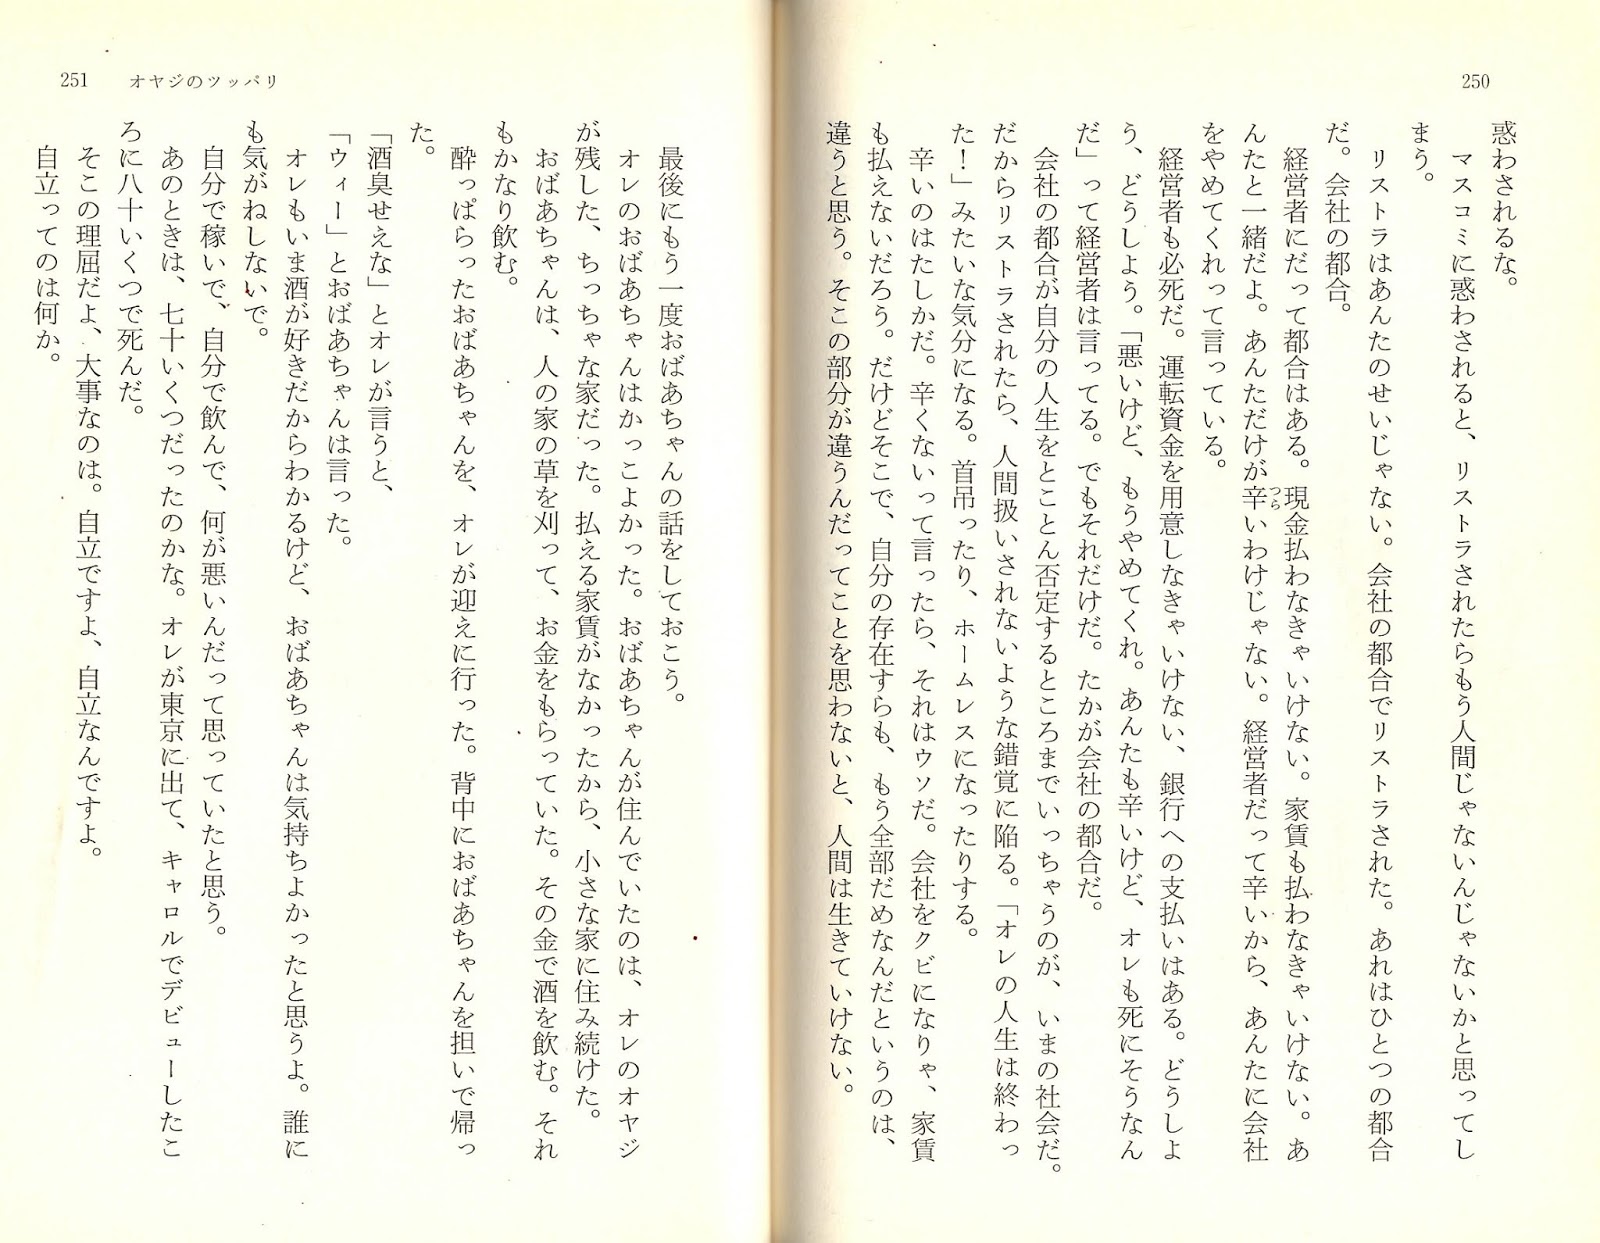 250
惑わされるな。
マスコミに惑わされると、リストラされたらもう人間じゃないんじゃないかと思ってし
まう。
リストラはあんたのせいじゃない。会社の都合でリストラされた。あれはひとつの都合
だ。会社の都合。
経営者にだって都合はある。現金払わなきゃいけない。家賃も払わなきゃいけない。あ
んたと一緒だよ。あんただけが辛いわけじゃない。経営者だって辛いから、あんたに会社
つら
をやめてくれって言っている。
経営者も必死だ。運転資金を用意しなきゃいけない、銀行への支払いはある。どうしよ
う、どうしよう。「悪いけど、もうやめてくれ。あんたも辛いけど、オレも死にそうなん
だ」って経営者は言ってる。でもそれだけだ。たかが会社の都合だ。
会社の都合が自分の人生をとことん否定するところまでいっちゃうのが、いまの社会だ。
だからリストラされたら、人間扱いされないような錯覚に陥る。「オレの人生は終わっ
た！」みたいな気分になる。首吊ったり、ホームレスになったりする。
辛いのはたしかだ。辛くないって言ったら、それはウソだ。会社をクビになりゃ、家賃
も払えないだろう。だけどそこで、自分の存在すらも、もう全部だめなんだというのは、
違うと思う。そこの部分が違うんだってことを思わないと、人間は生きていけない。
251 オヤジのツッパリ
最後にもう一度おばあちゃんの話をしておこう。
オレのおばあちゃんはかっこよかった。おばあちゃんが住んでいたのは、オレのオヤジ
が残した、ちっちゃな家だった。払える家賃がなかったから、小さな家に住み続けた。
おばあちゃんは、人の家の草を刈って、お金をもらっていた。その金で酒を飲む。それ
もかなり飲む。
酔っぱらったおばあちゃんを、オレが迎えに行った。背中におばあちゃんを担いで帰っ
た。
「酒臭せえな」とオレが言うと、
「ウィー」とおばあちゃんは言った。
オレもいま酒が好きだからわかるけど、おばあちゃんは気持ちよかったと思うよ。誰に
も気がねしないで。
自分で稼いで、自分で飲んで、何が悪いんだって思っていたと思う。
あのときは、七十いくつだったのかな。オレが東京に出て、キャロルでデビューしたこ
ろに八十いくつで死んだ。
そこの理屈だよ、大事なのは。自立ですよ、自立なんですよ。
自立ってのは何か。